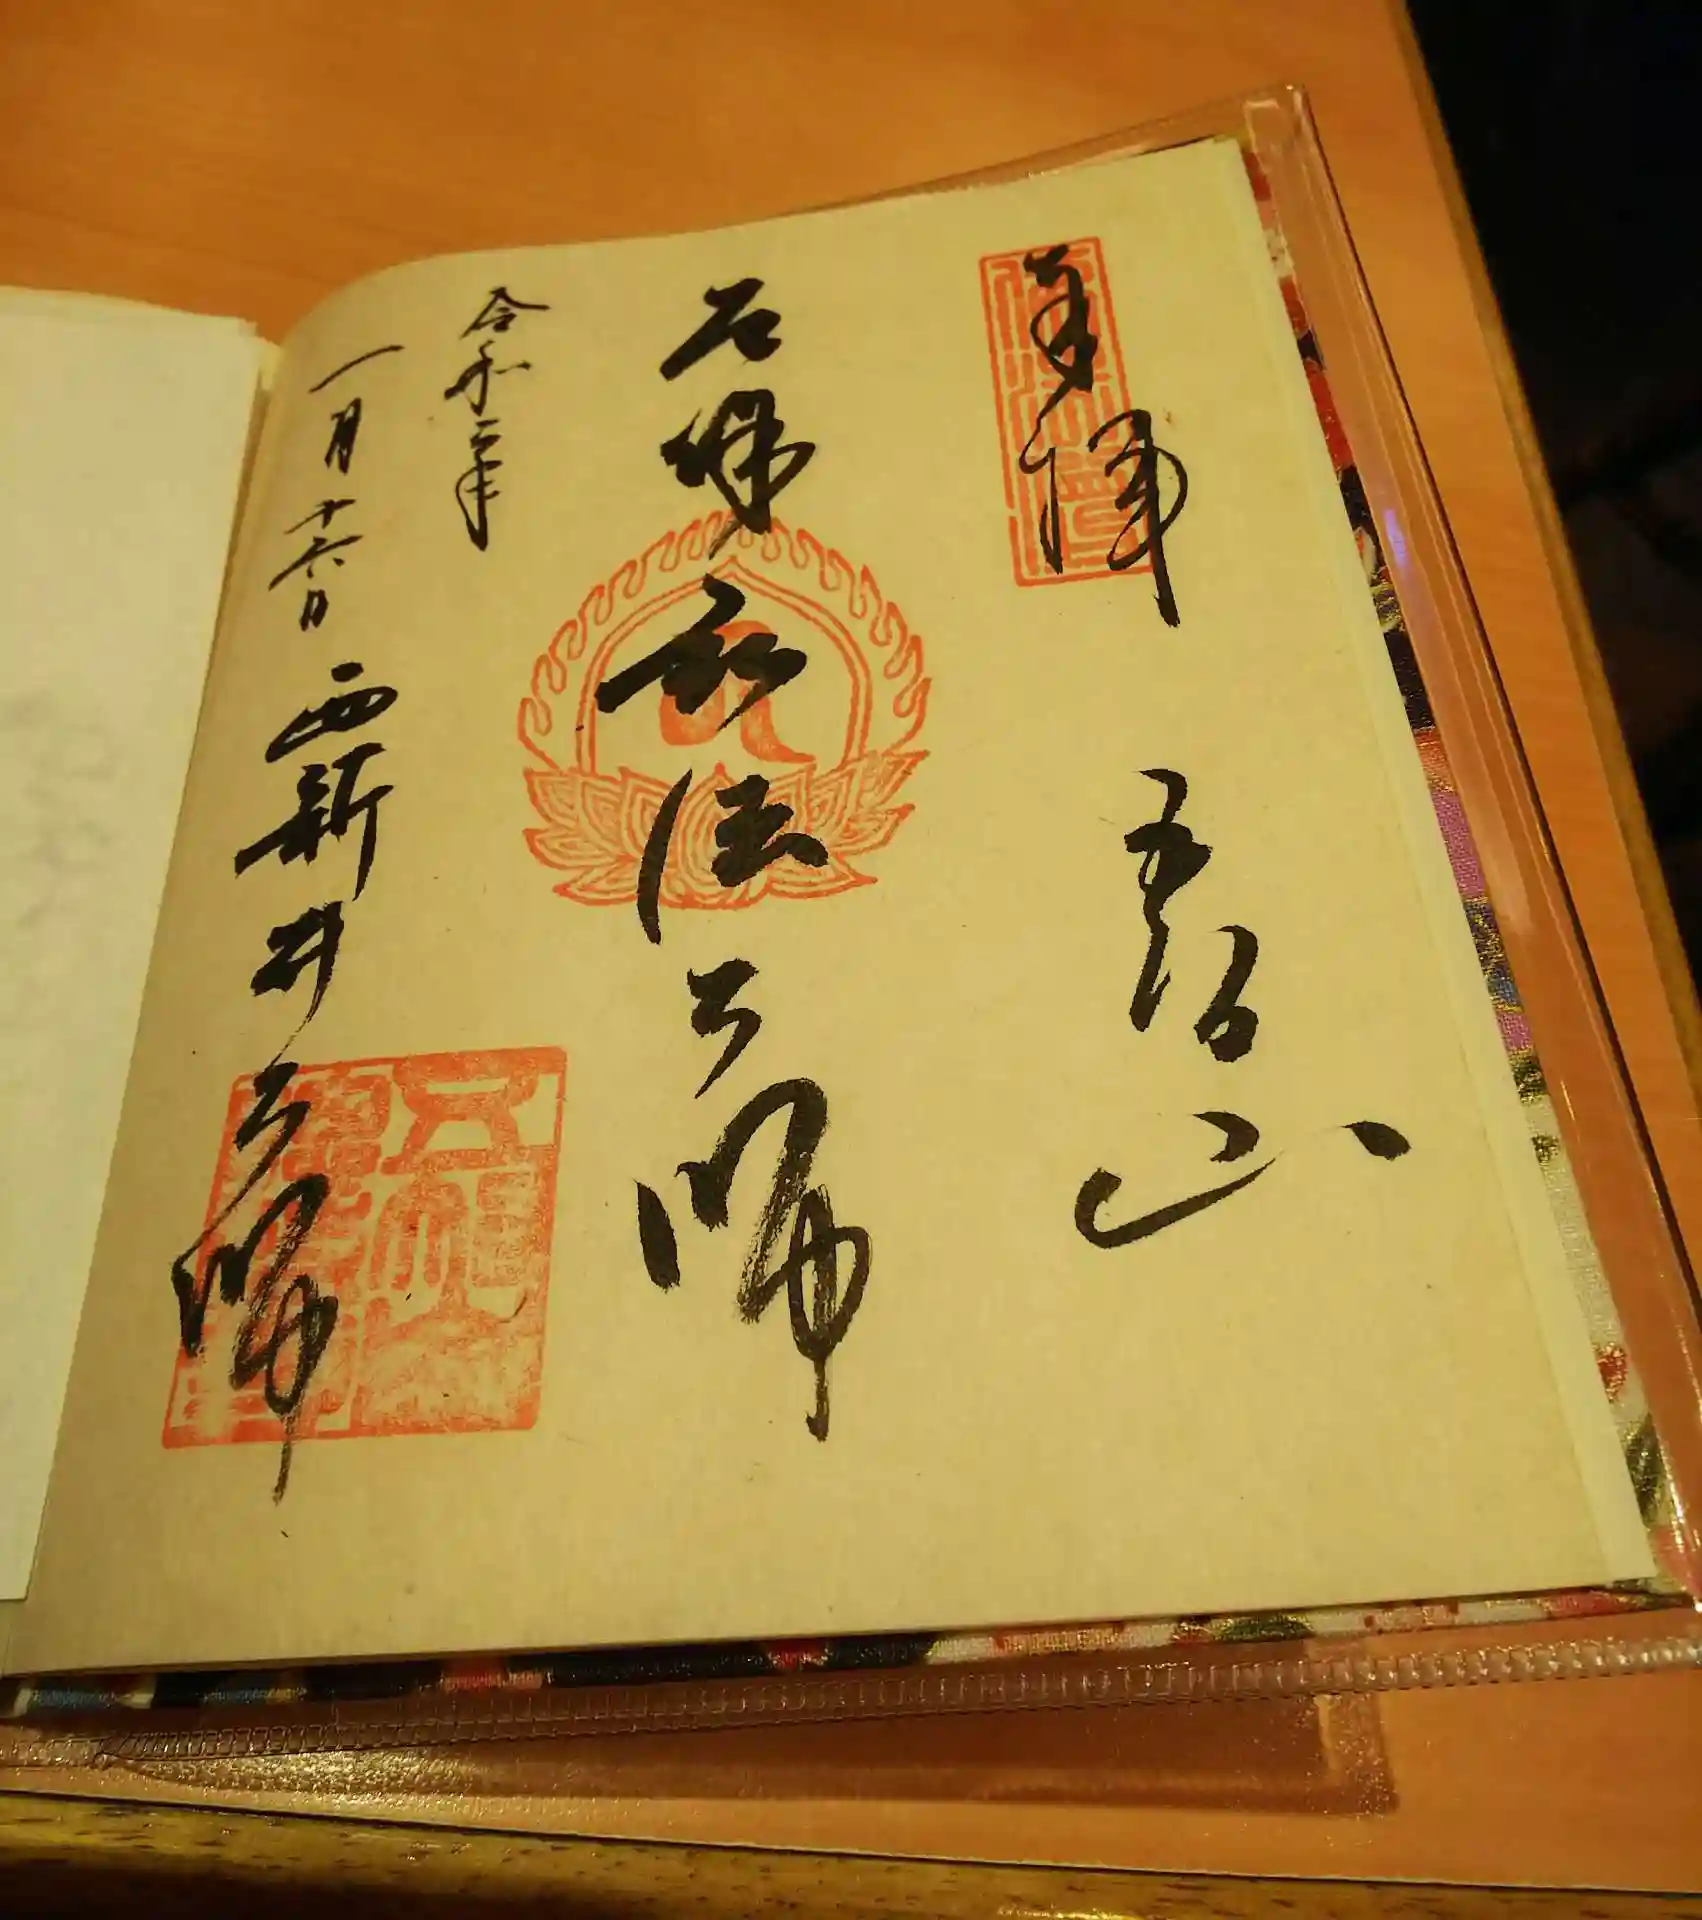 奉拝 五智山
厄除弘法大師
令和二年
一月十六日 西新井大師